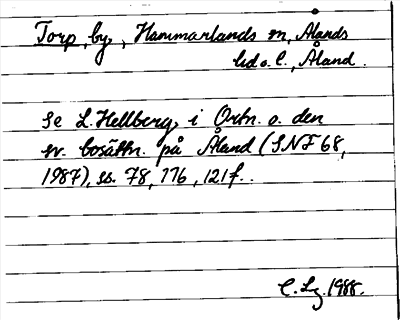 Torp, by, Hammarlands sn, Ålands
hd o. l., Åland.
Se L. Hellberg, i Ortn. o. den
sv. bosättn. på Åland (SNF 68,
1987), ss. 78, 176, 121 f..
C. Lg. 1988.